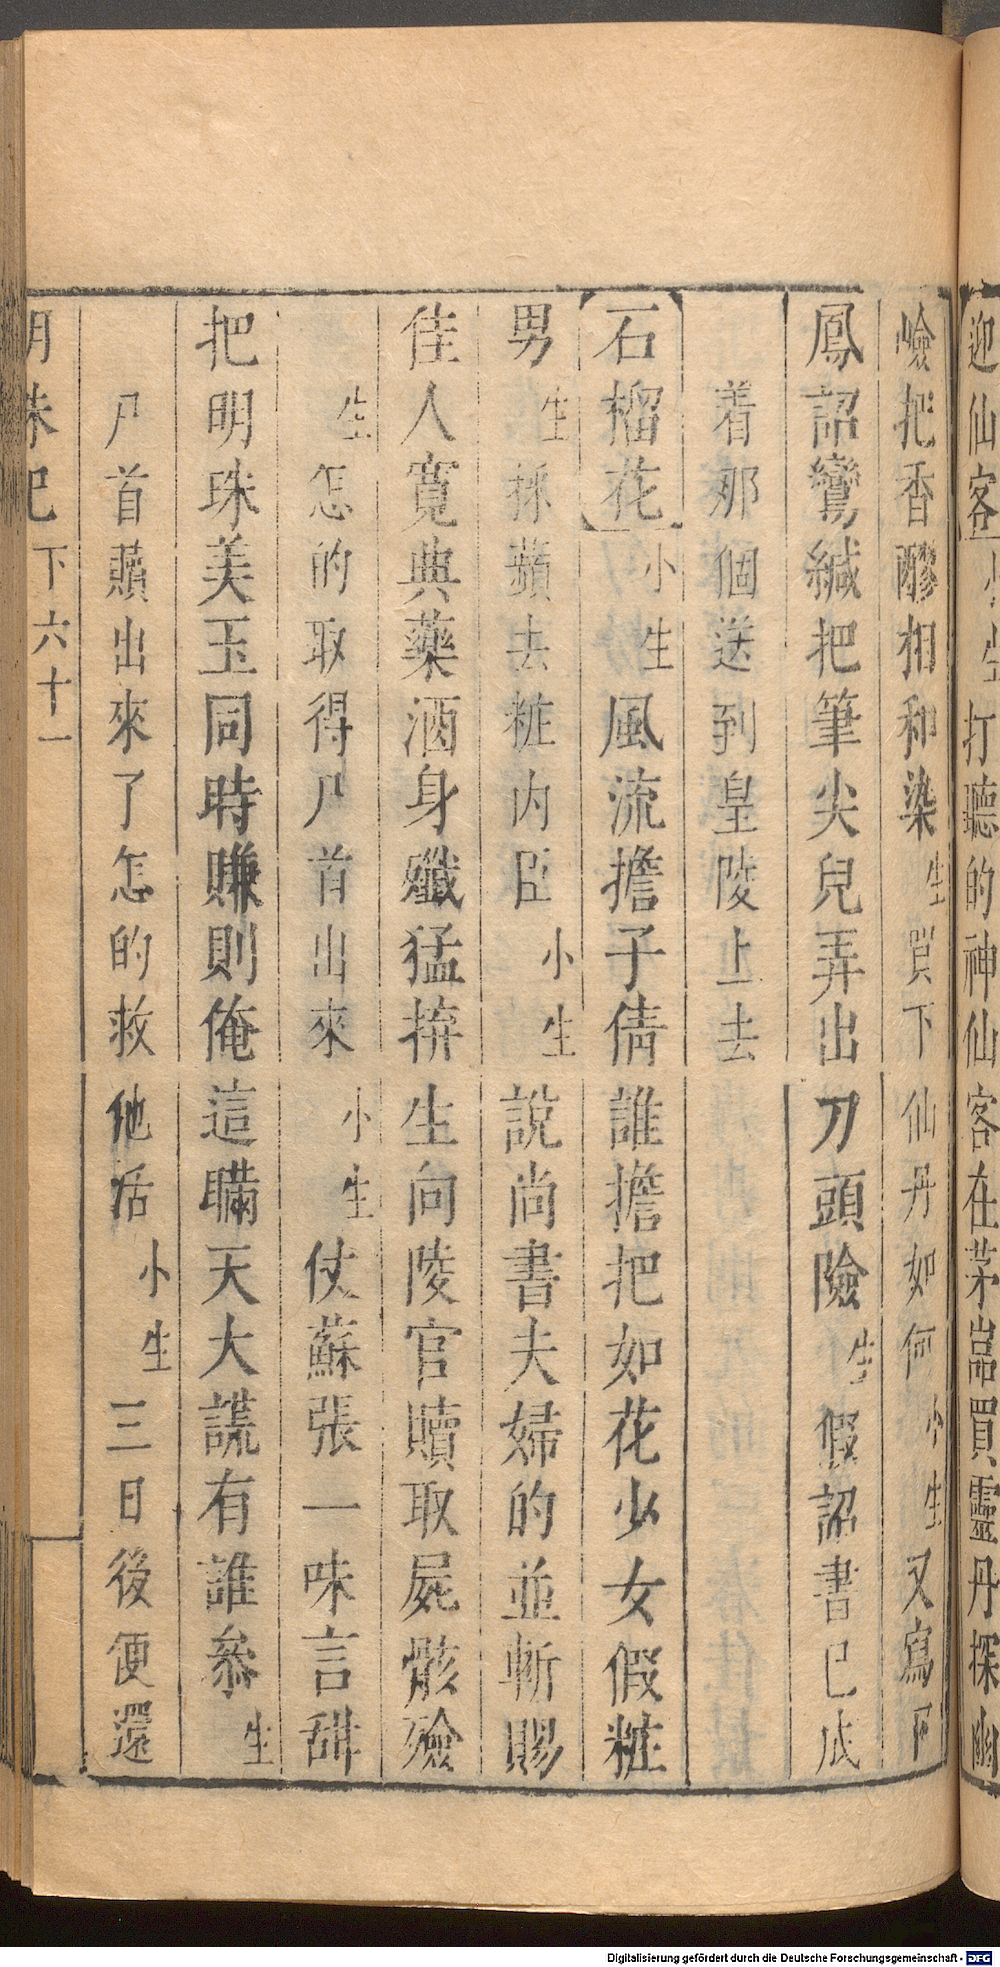 迎仙客小生打聽的神仙客在茅嵓買靈丹探幽
嶮把香醪相和染生買下仙丹如何小生又寫下
鳳詔鸞緘把筆尖兒弄出刀頭險生假詔書已成
着那個送到皇陵上去
石榴花小生風流擔子倩誰擔把如花少女假粧
男生採蘋去粧内臣小生說尚書夫婦的並斬賜
佳人寬典藥酒身殲猛拚生向陵官贖取屍骸殮
生怎的取得尸首出來小生仗蘇張一味言甜
把明珠美玉同時賺則俺這瞞天大謊有誰叅生
尸首贖出來了怎的救他活小生三日後便還
明珠記下六十一
Digitalisierung gefördert durch die Deutsche Forschungsgemeinschaft - DFG